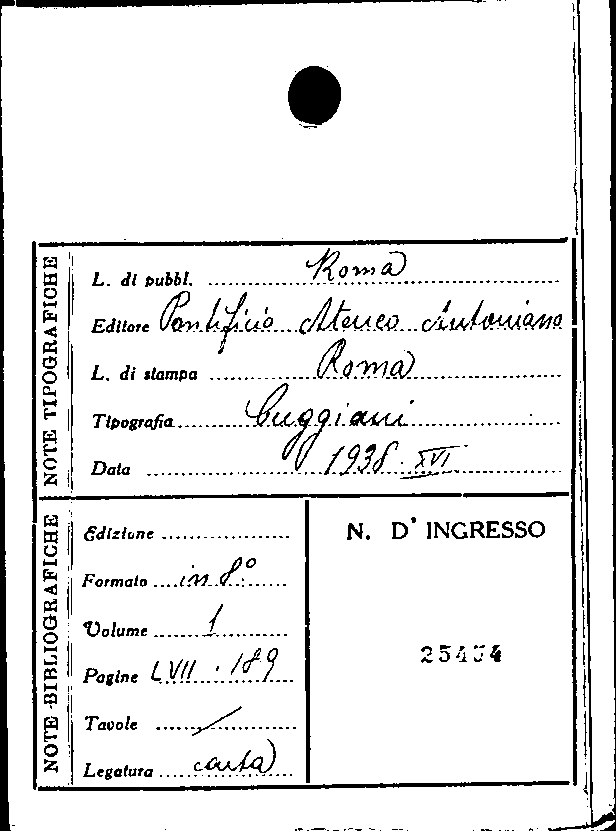 NOTE TIPOGRAFICHE
L. di pubbl. Roma
Editore Pontificio Ateneo Antoniano
L. di stampa Roma
Tipografia Cuggiani
Data 1938. XVI
NOTE BIBLIOGRAFICHE
Edizione
Formato in 8°
Volume 1
Pagine LVII . 189
Tavole /
Legatura carta
N. D' INGRESSO